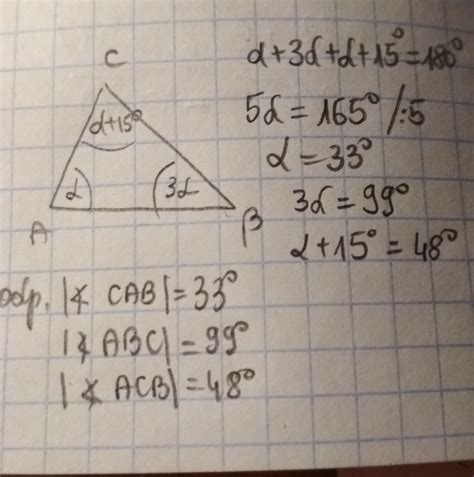 C
α+15°
α
3α
A
B
α+3α+α+15°=180°
5α=165° /:5
α=33°
3α=99°
α+15°=48°
odp. |∢ CAB|=33°
|∢ ABC|=99°
|∢ ACB|=48°